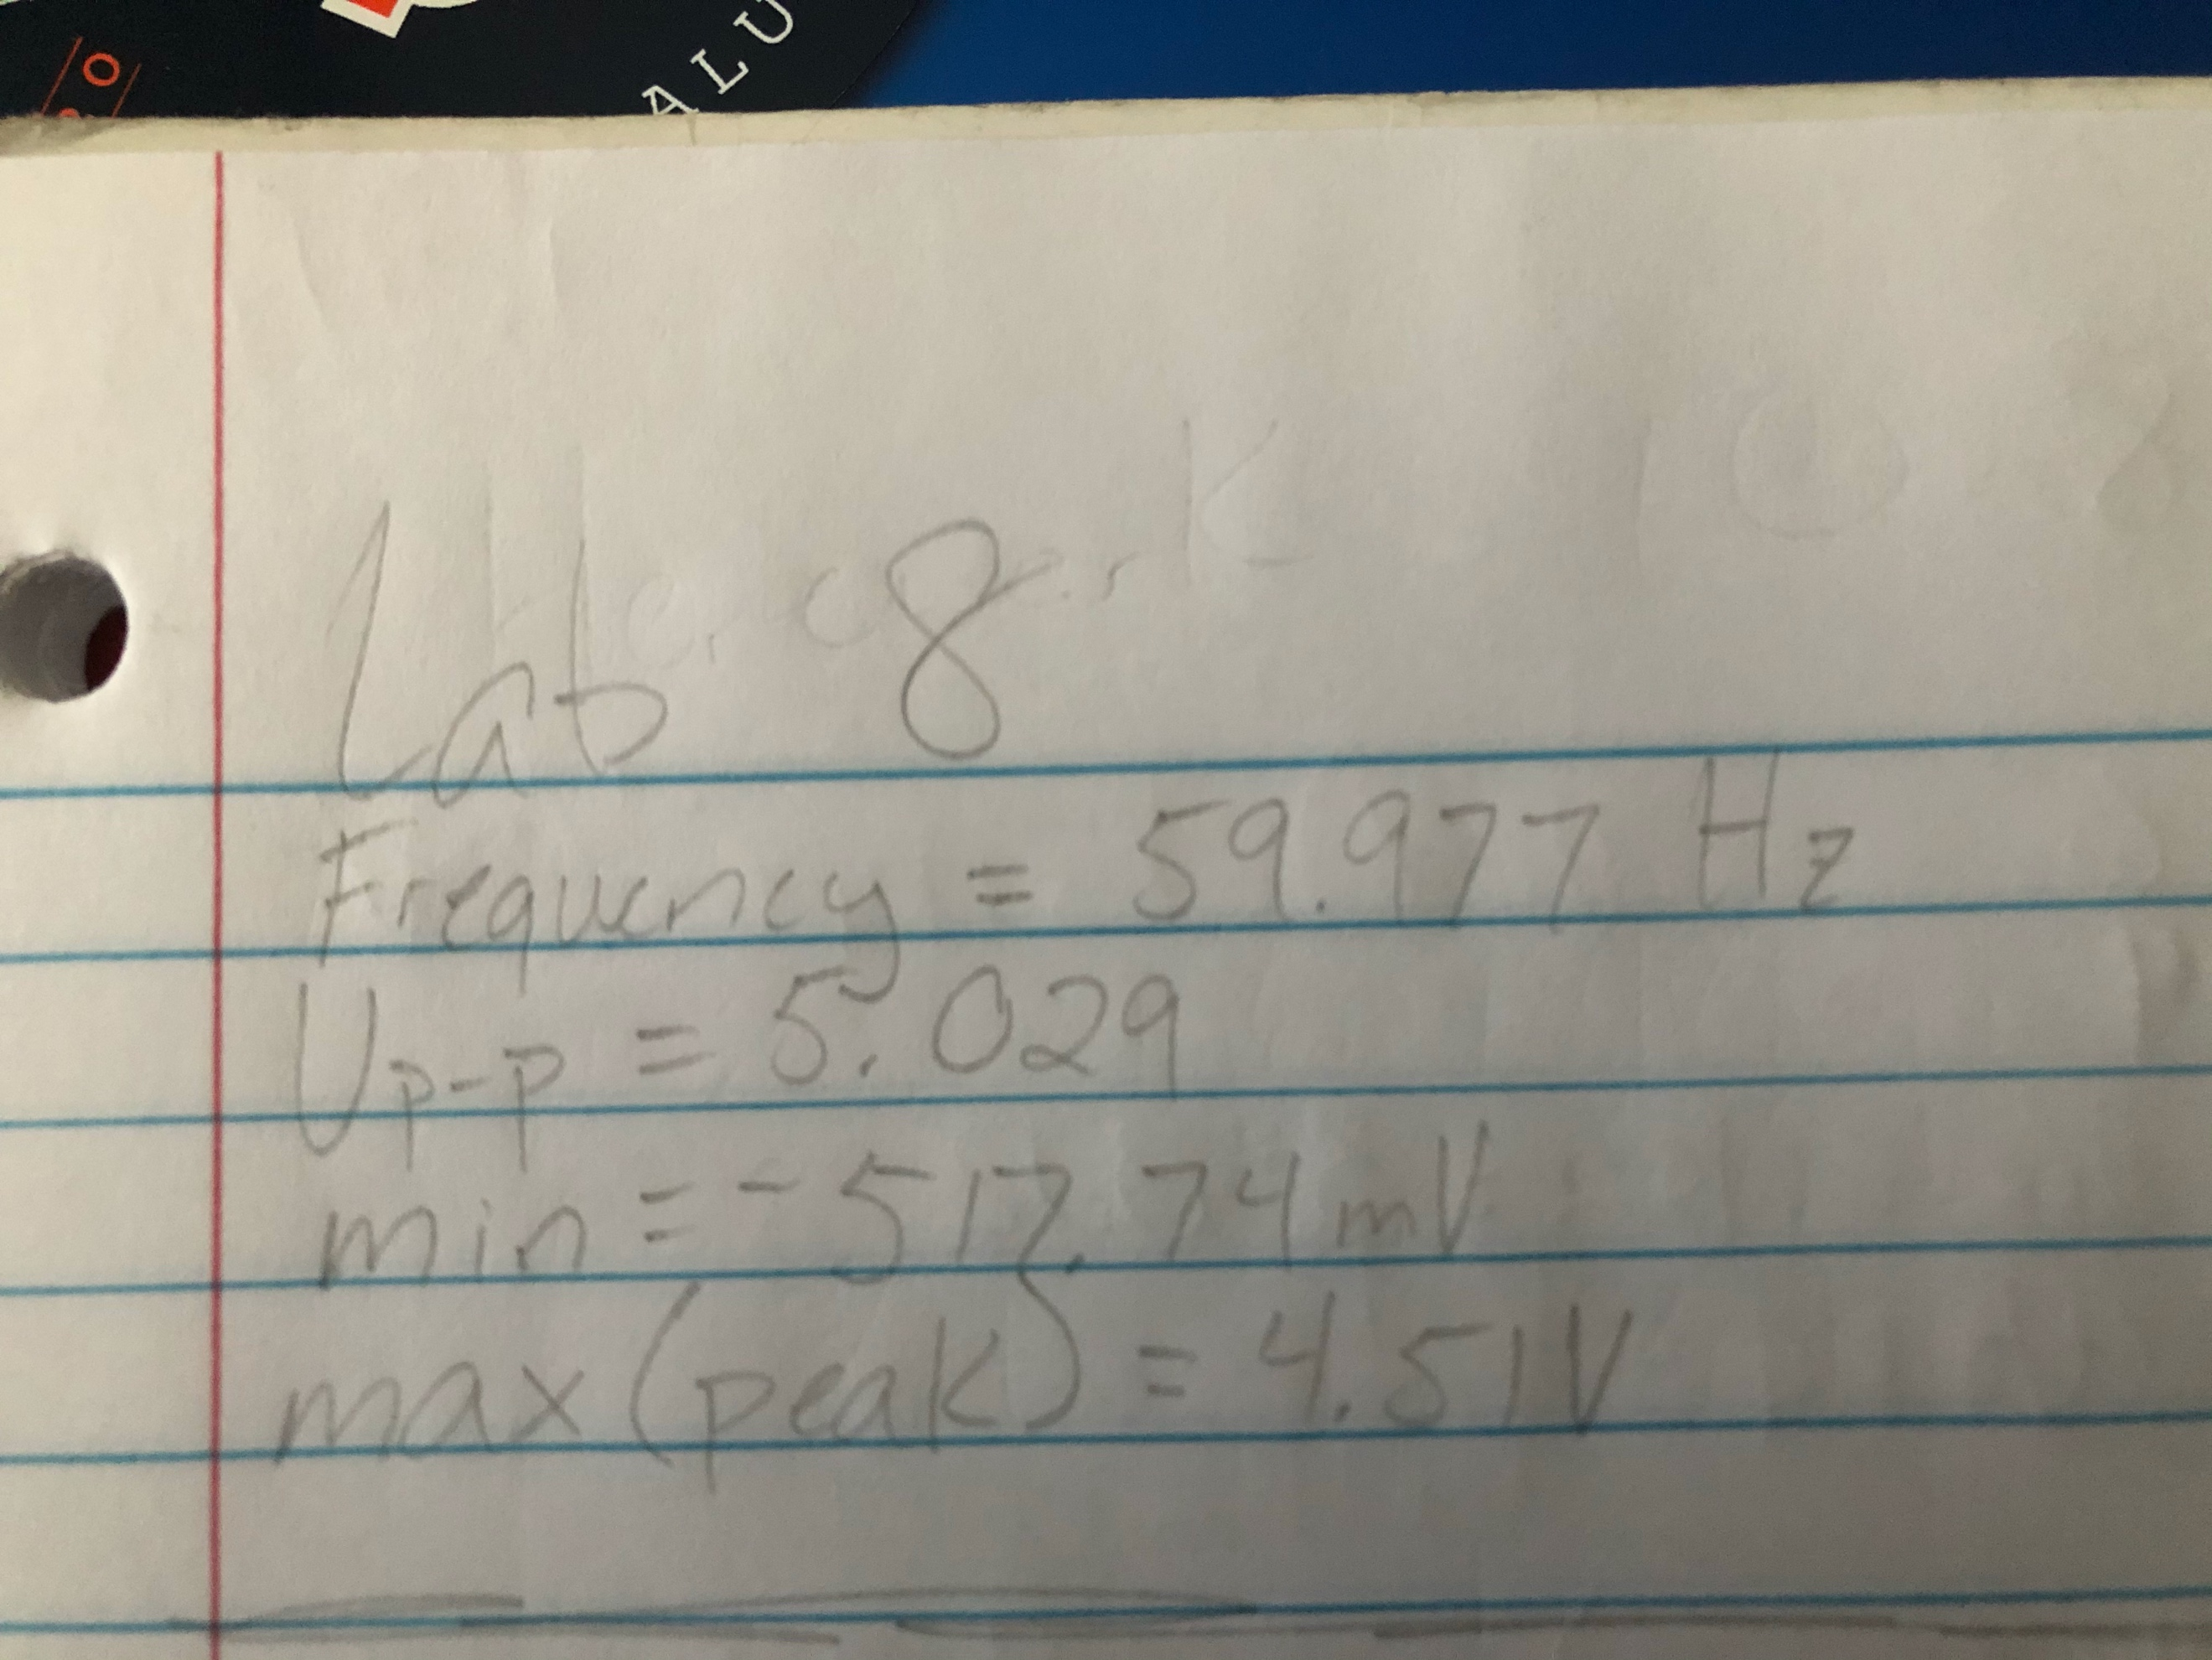 ALU
Lab 8
Frequency = 59.977 Hz
Up-p = 5.029
min = -517.74 mV
max (peak) = 4.51V